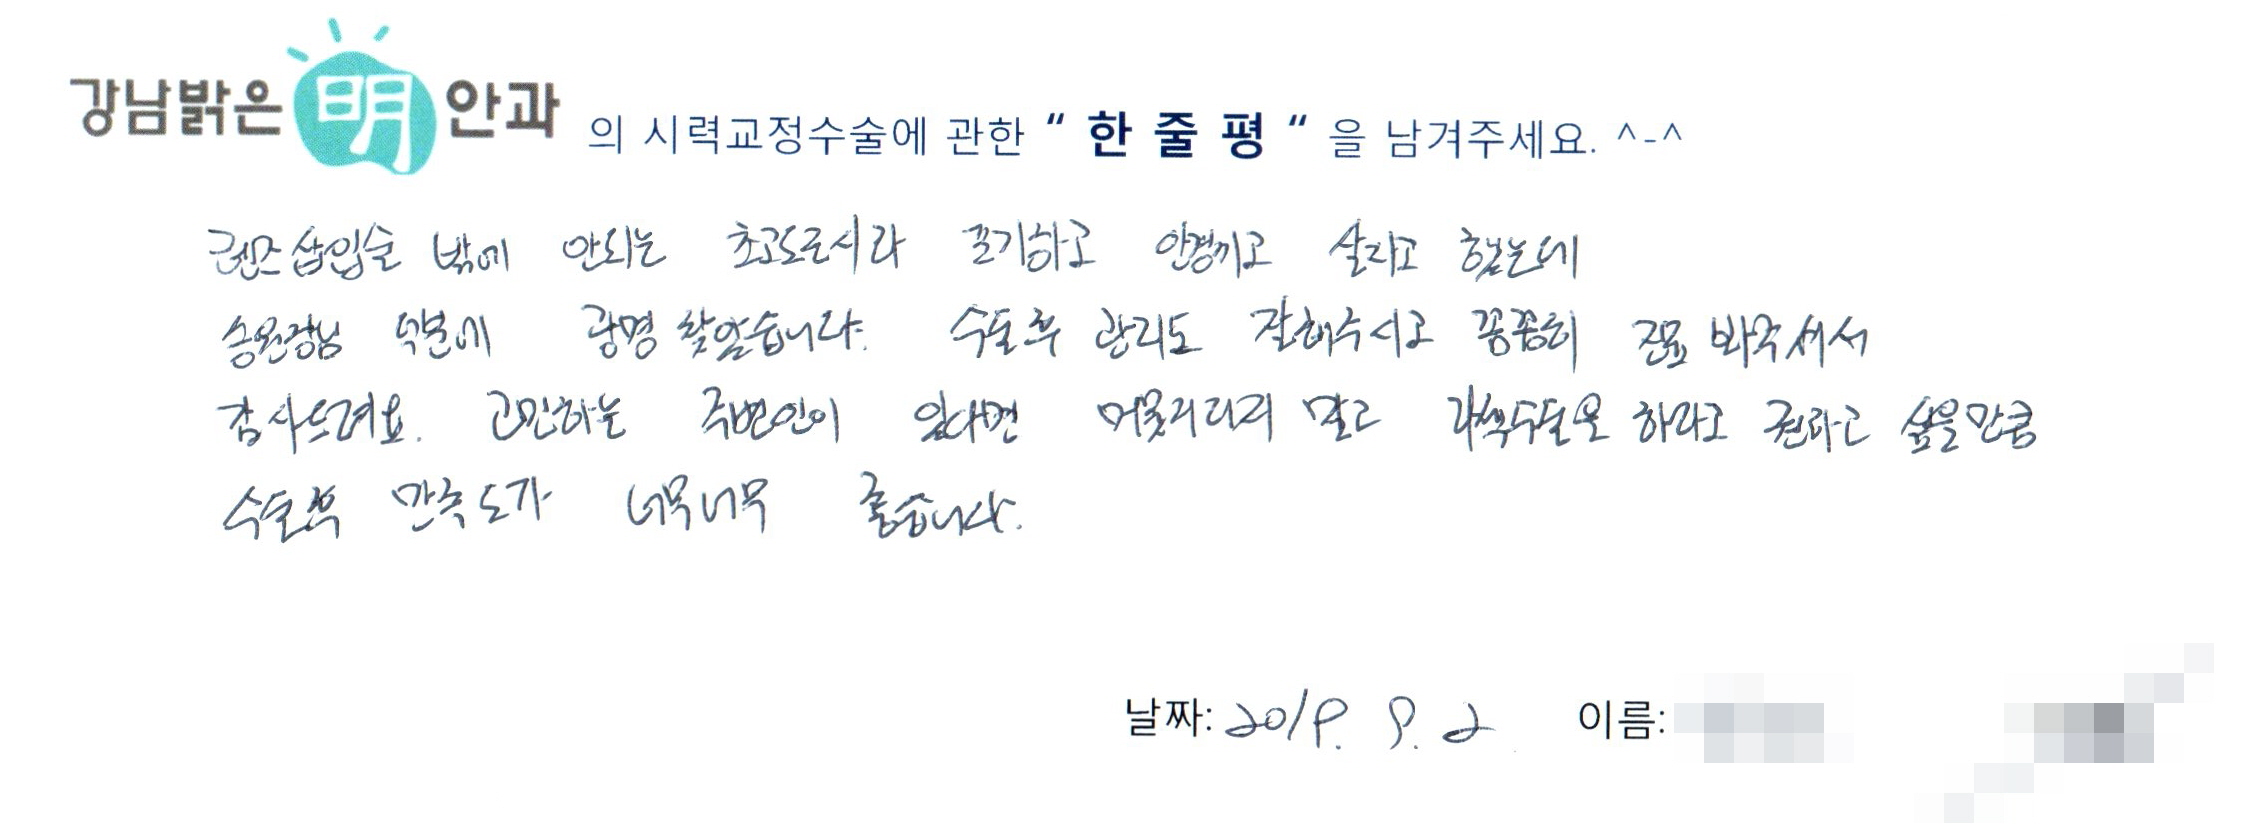 강남밝은 明 안과 의 시력교정수술에 관한 " 한 줄 평 " 을 남겨주세요. ^-^
렌즈삽입술 밖에 안되는 초고도근시라 포기하고 안경끼고 살자고 했는데
송원장님 덕분에 광명 찾았습니다. 수술후 관리도 잘해주시고 꼼꼼히 진료 봐주셔서
감사드려요. 고민하는 주변인이 있다면 머뭇거리지 말고 라섹수술을 하라고 권하고 싶을만큼
수술후 만족도가 너무너무 좋습니다.
날짜: 2019. 9. 2 이름: